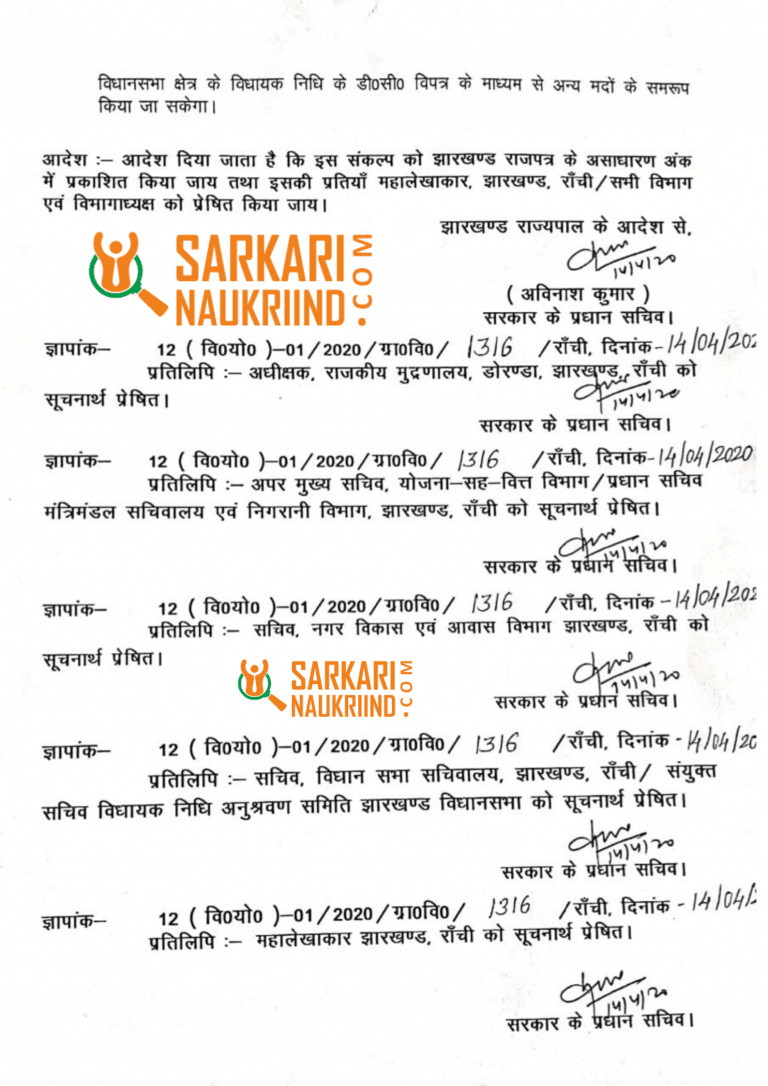 विधानसभा क्षेत्र के विधायक निधि के डी०सी० विपत्र के माध्यम से अन्य मदों के समरूप
किया जा सकेगा।
आदेश :– आदेश दिया जाता है कि इस संकल्प को झारखण्ड राजपत्र के असाधारण अंक
में प्रकाशित किया जाय तथा इसकी प्रतियाँ महालेखाकार, झारखण्ड, राँची/सभी विभाग
एवं विभागाध्यक्ष को प्रेषित किया जाय।
झारखण्ड राज्यपाल के आदेश से,
14/4/20
SARKARI
NAUKRIIND
.COM
( अविनाश कुमार )
सरकार के प्रधान सचिव।
ज्ञापांक– 12 ( वि०यो० )–01/2020/ग्रा०वि०/ 1316 /राँची, दिनांक-14/04/202
प्रतिलिपि :– अधीक्षक, राजकीय मुद्रणालय, डोरण्डा, झारखण्ड, राँची को
सूचनार्थ प्रेषित।
14/4/20
सरकार के प्रधान सचिव।
ज्ञापांक– 12 ( वि०यो० )–01/2020/ग्रा०वि०/ 1316 /राँची, दिनांक-14/04/2020
प्रतिलिपि :– अपर मुख्य सचिव, योजना–सह–वित्त विभाग/प्रधान सचिव
मंत्रिमंडल सचिवालय एवं निगरानी विभाग, झारखण्ड, राँची को सूचनार्थ प्रेषित।
14/4/20
सरकार के प्रधान सचिव।
ज्ञापांक– 12 ( वि०यो० )–01/2020/ग्रा०वि०/ 1316 /राँची, दिनांक-14/04/202
प्रतिलिपि :– सचिव, नगर विकास एवं आवास विभाग झारखण्ड, राँची को
सूचनार्थ प्रेषित।
SARKARI
NAUKRIIND
.COM
14/4/20
सरकार के प्रधान सचिव।
ज्ञापांक– 12 ( वि०यो० )–01/2020/ग्रा०वि०/ 1316 /राँची, दिनांक-14/04/20
प्रतिलिपि :– सचिव, विधान सभा सचिवालय, झारखण्ड, राँची/ संयुक्त
सचिव विधायक निधि अनुश्रवण समिति झारखण्ड विधानसभा को सूचनार्थ प्रेषित।
14/4/20
सरकार के प्रधान सचिव।
ज्ञापांक– 12 ( वि०यो० )–01/2020/ग्रा०वि०/ 1316 /राँची, दिनांक-14/04/2
प्रतिलिपि :– महालेखाकार झारखण्ड, राँची को सूचनार्थ प्रेषित।
14/4/20
सरकार के प्रधान सचिव।